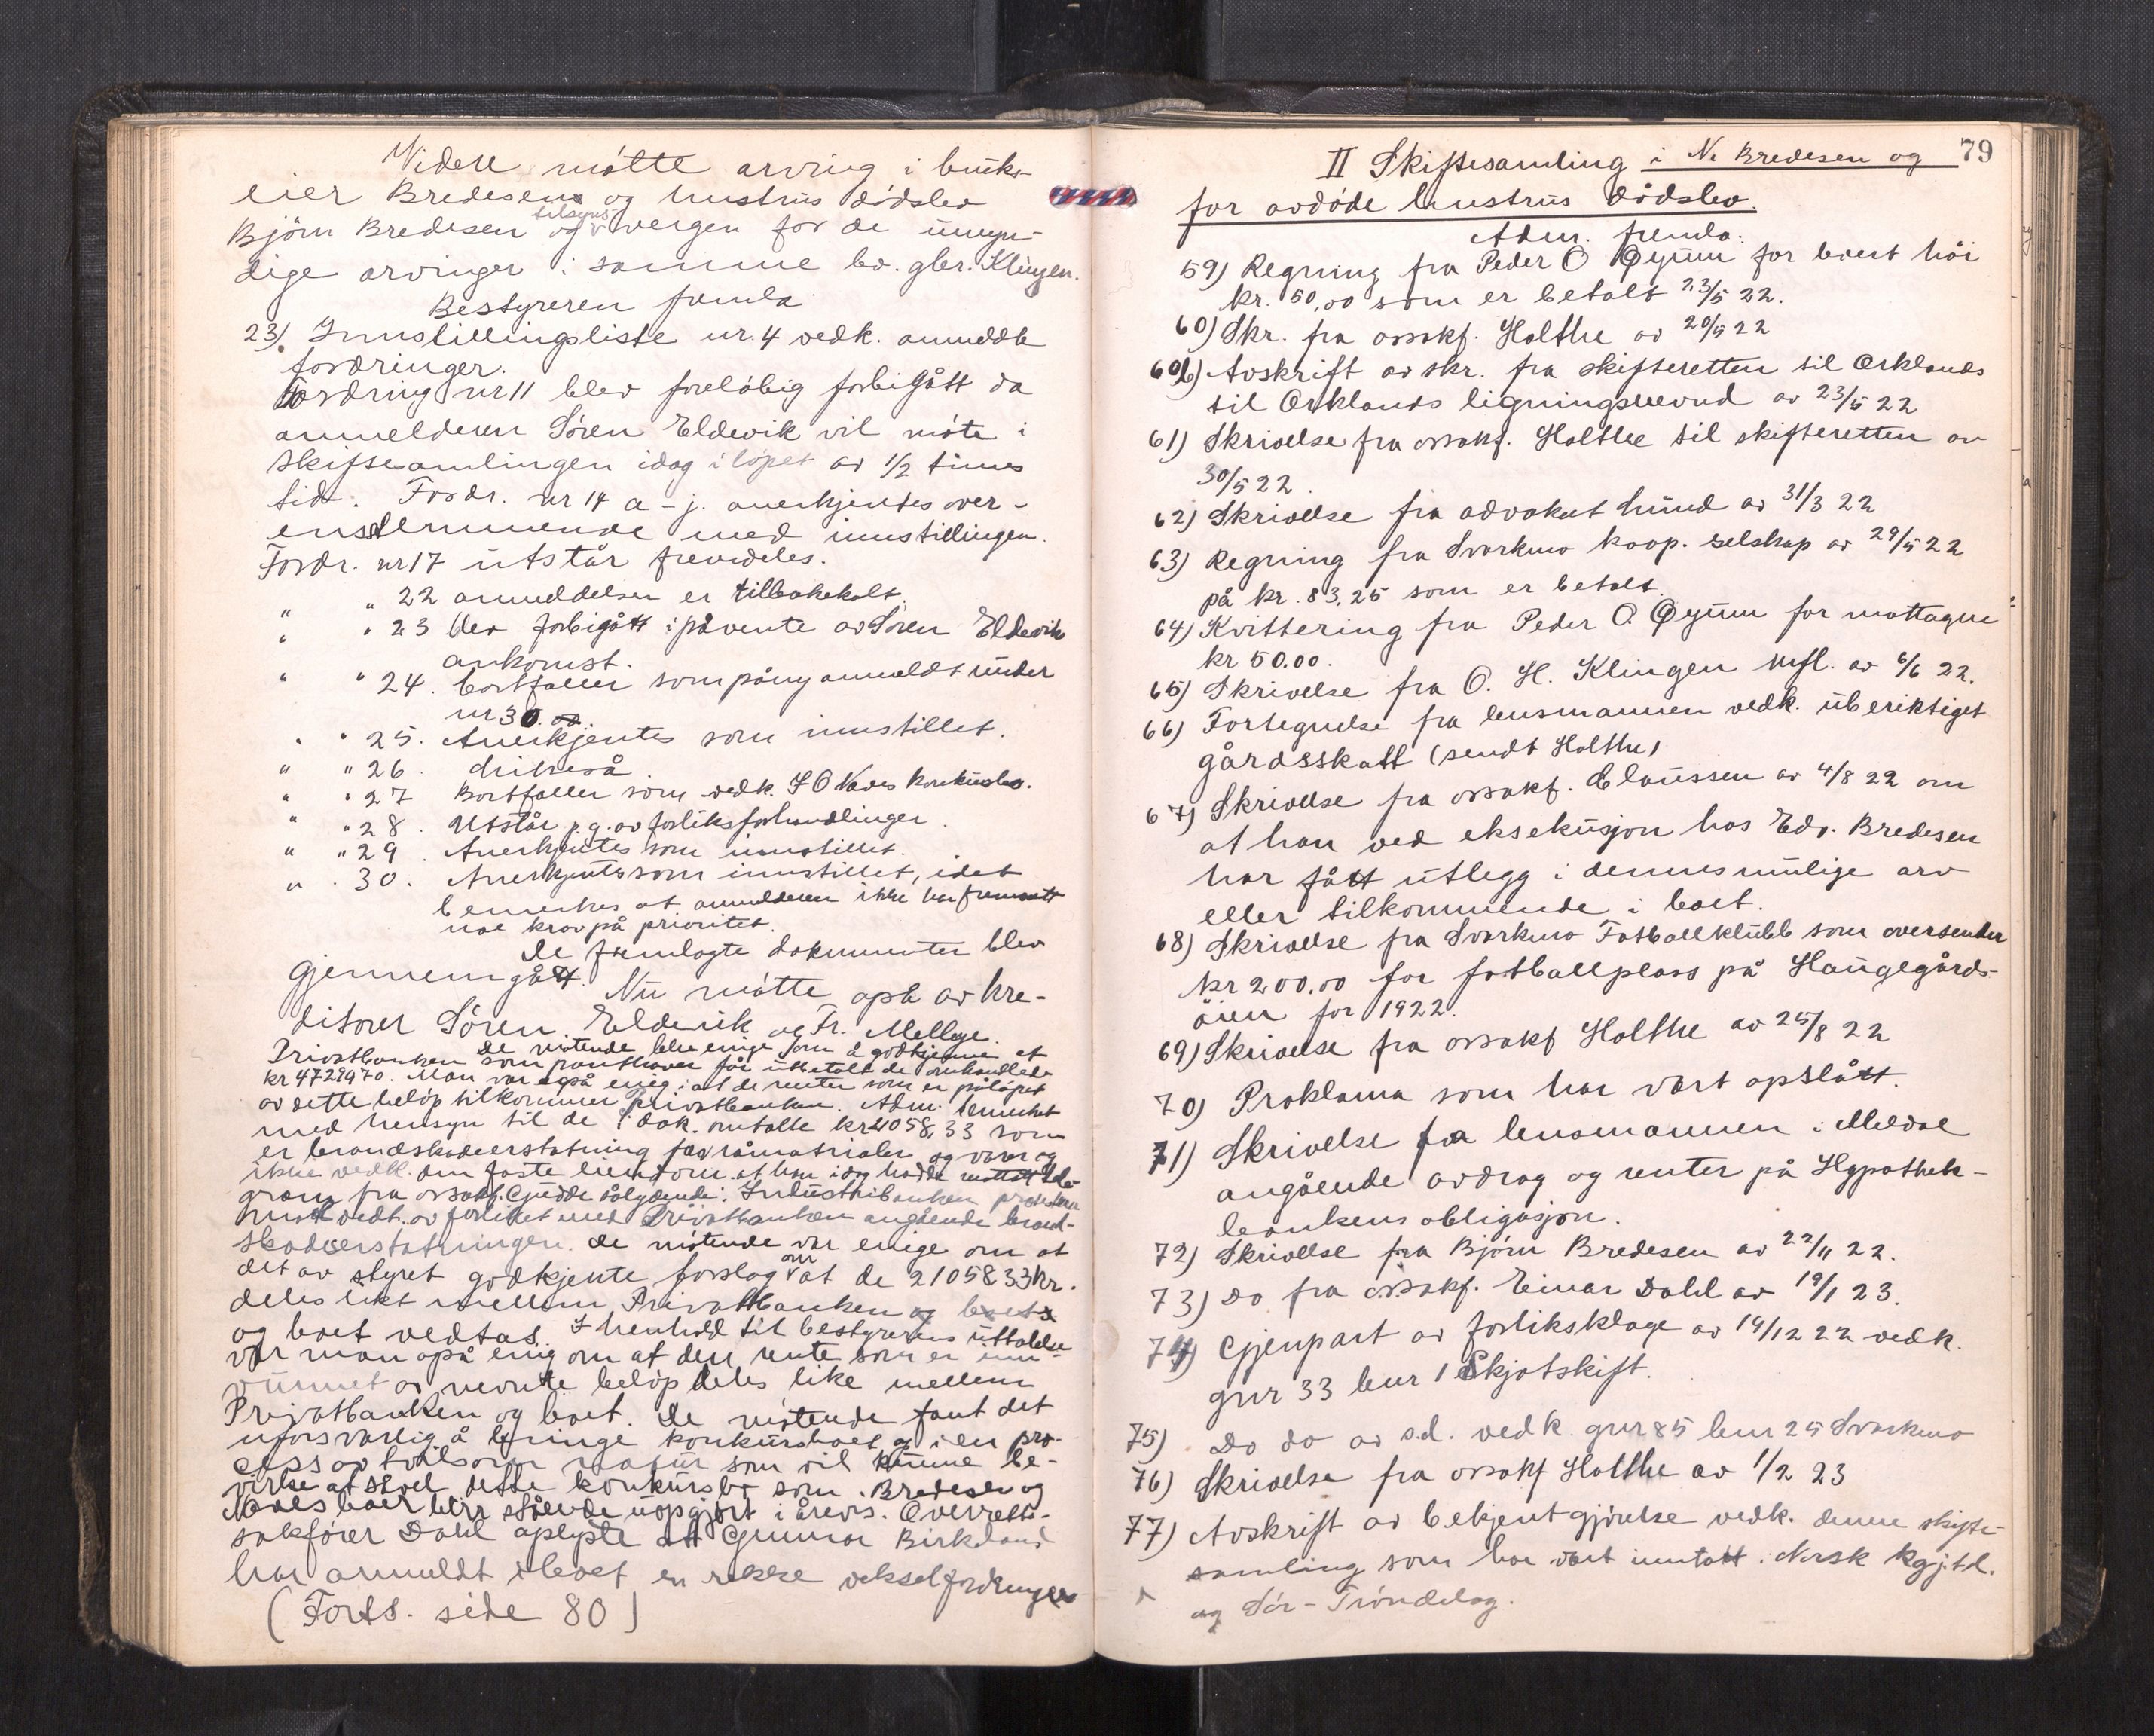 Videre møtte arving i bruks-
eier Bredesens og hustrus dødsbo
Bjørn Bredesen og tilsyns vergen for de umyn-
dige arvinger i samme bo. gbr. Klingen.
Bestyreren fremla
23) Innstillingsliste nr. 4 vedk. anmeldte
fordringer.
Fordring nr 11 blev foreløbig forbigått da
anmelderen Sören Eldevik vil møte i
skiftesamlingen idag i løpet av 1/2 times
tid. Fordr. nr 14 a-j. anerkjentes over-
ensstemmende med innstillingen.
Fordr. nr 17 utstår fremdeles.
" " 22 anmeldelsen er tilbakekalt.
" " 23 blev forbigått i påvente av Sören Eldeviks
ankomst.
" " 24. bortfaller som påny anmeldt under
nr 30.
" " 25. Anerkjentes som innstillet.
" " 26. likeså.
" " 27 Bortfaller som vedk. I O Naves konkursbo.
" " 28. Utstår p.g.av forliksforhandlinger.
" " 29. Anerkjentes som innstillet.
" " 30. Anerkjentes som innstillet, idet
bemerkes at anmelderen ikke har fremsatt
noe krav på prioritet.
De fremlagte dokumenter blev
gjennemgått. Nu møtte også av kre-
ditorer Sören Eldevik og Fr. Mellbye.
De møtende blev enige om å godkjenne at
Privatbanken som panthaver får utbetalt de omhandlede
kr 4729970. Man var også enig i at de renter som er påløpet
av dette beløp tilkommer Privatbanken. Adm. bemerket
med hensyn til de i dok. omtalte kr 21058,33 som
er brandskadeerstatning for råmaterialer og varer og
ikke vedk. den faste eiendom at han idag hadde mottatt tele-
gram fra orsakf. Gjedde sålydende: Industribanken protesterer
mot vedt. av forliket med Privatbanken angående brand-
skadeerstatningen. De møtende var enige om at
det av styret godkjente forslag om at de 21058 33 kr.
deles likt mellem Privatbanken og boets
og boet vedtas. I henhold til bestyrerens uttalelse
var man også enig om at den rente som er inn-
vunnet av nevnte beløp deles like mellem
Privatbanken og boet. De møtende fant det
uforsvarlig å bringe konkursboet og i en pro-
cess av tvilsom natur som vil kunne be-
virke at såvel dette konkursbo som Bredesen og
Naves boer blir stående uopgjort i årevis. Overretts-
sakfører Dahl oplyste att Gunnar Birkeland
har anmeldt i boet en rekke vekselfordringer
(Forts. side 80)
79
II Skiftesamling i N. Bredesen og
for avdøde hustrus dødsbo.
Adm. fremla:
59) Regning fra Peder O Øyum for levert høi
kr. 50,00 som er betalt 23/5 22.
60) Skr. fra orsakf. Holthe av 20/5 22
60b) Avskrift av skr. fra skifteretten til Orklands
til Orklands ligningsnevnd av 23/5 22
61) Skrivelse fra orsakf. Holthe til skifteretten av
30/5 22.
62) Skrivelse fra advokat Lund av 31/3 22
63) Regning fra Svorkmo koop. selskap av 29/5 22
på kr. 83,25 som er betalt.
64) Kvittering fra Peder O. Øyum for mottagne
kr 50.00.
65) Skrivelse fra O. H. Klingen mfl. av 6/6 22.
66) Fortegnelse fra lensmannen vedk. uberiktiget
gårdsskatt (sendt Holthe)
67) Skrivelse fra orsakf. Claussen av 4/8 22 om
at han ved eksekusjon hos Edv. Bredesen
har fått utlegg i dennes mulige arv
eller tilkommende i boet.
68) Skrivelse fra Svorkmo Fotballklubb som oversender
kr 200.00 for fotballplass på Haugegårds-
øien for 1922.
69) Skrivelse fra orsakf Holthe av 25/8 22
70) Proklama som har vært opslått.
71) Skrivelse fra lensmannen i Meldal
angående avdrag og renter på Hypothek-
bankens obligasjon.
72) Skrivelse fra Bjørn Bredesen av 22/11 22.
73) Do fra orsakf. Einar Dahl av 19/1 23.
74) Gjenpart av forliksklage av 19/12 22 vedk.
gnr 33 bnr 1 Skjøtskift.
75) Do do av s.d. vedk. gnr 85 bnr 25 Svorkmo
76) Skrivelse fra orsakf Holthe av 1/2 23
77) Avskrift av bekjentgjørelse vedk. denne skifte-
samling som har vært inntatt i Norsk kgj.td.
og Sør-Trøndelag.